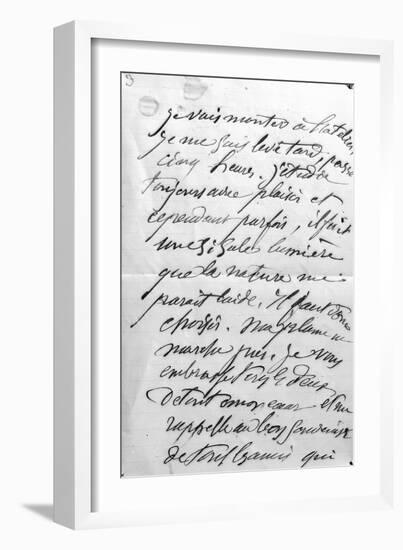 3
je vais monter à l'atelier,
je me suis levé tard, passé
cinq heures. J'étudie
toujours avec plaisir et
cependant parfois, il fait
une si sale lumière
que la nature me
parait laide. Il faut donc
choisir. ma plume ne
marche pas. je vous
embrasse tous les deux
de tout mon cœur et me
rappelle au bon souvenir
de tous les amis qui